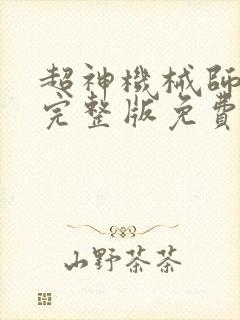 超神機械師
完整版免費
山野茶茶